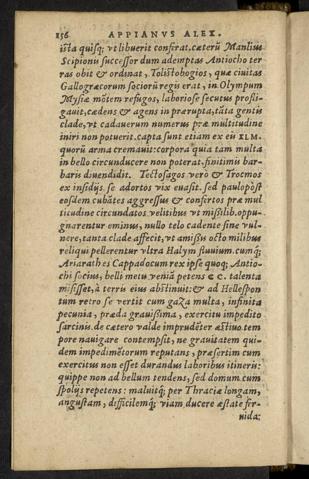 156 APPIANVS ALEX.
ista quisq; vt libuerit confirat. cæterũ Manlius
Scipionis successor dum ademptas Antiocho ter
ras obit & ordinat, Tolistobogios, quæ ciuitas
Gallogræcorum sociorũ regis erat, in Olympum
Mysiæ mõtem refugos, laboriose secutus profli-
gauit, cædens & agens in prærupta, tãta gentis
clade, vt cadauerum numerus præ multitudine
iniri non potuerit. capta sunt etiam ex eis XLM.
quorũ arma cremauit: corpora quia tam multa
in bello circunducere non poterat, finitimis bar-
baris diuendidit. Tectosagos verò & Trocmos
ex insidijs se adortos vix euasit. sed paulopòst
eosdem cubãtes aggressus & confertos præ mul
titudine circundatos velitibus vt missilib. oppu-
gnarentur eminus, nullo telo cadente sine vul-
nere, tanta clade affecit, vt amissis octo milibus
reliqui pellerentur vltra Halym fluuium. cumq;
Ariarathes Cappadocum rex ipse quoq; Antio-
chi socius, belli metu veniã petens CC. talenta
misisset, à terris eius abstinuit: & ad Hellespon
tum retro se vertit cum gaza multa, infinita
pecunia, præda grauissima, exercitu impedito
sarcinis. de cætero valde imprudẽter æstiuo tem
pore nauigare contempsit, ne grauitatem qui-
dem impedimẽtorum reputans, præsertim cum
exercitus non esset durandus laboribus itineris:
quippe non ad bellum tendens, sed domum cum
spolijs repetens: maluitq; per Thraciæ longam,
angustam, difficilemq; viam ducere æstate fer-
uida: